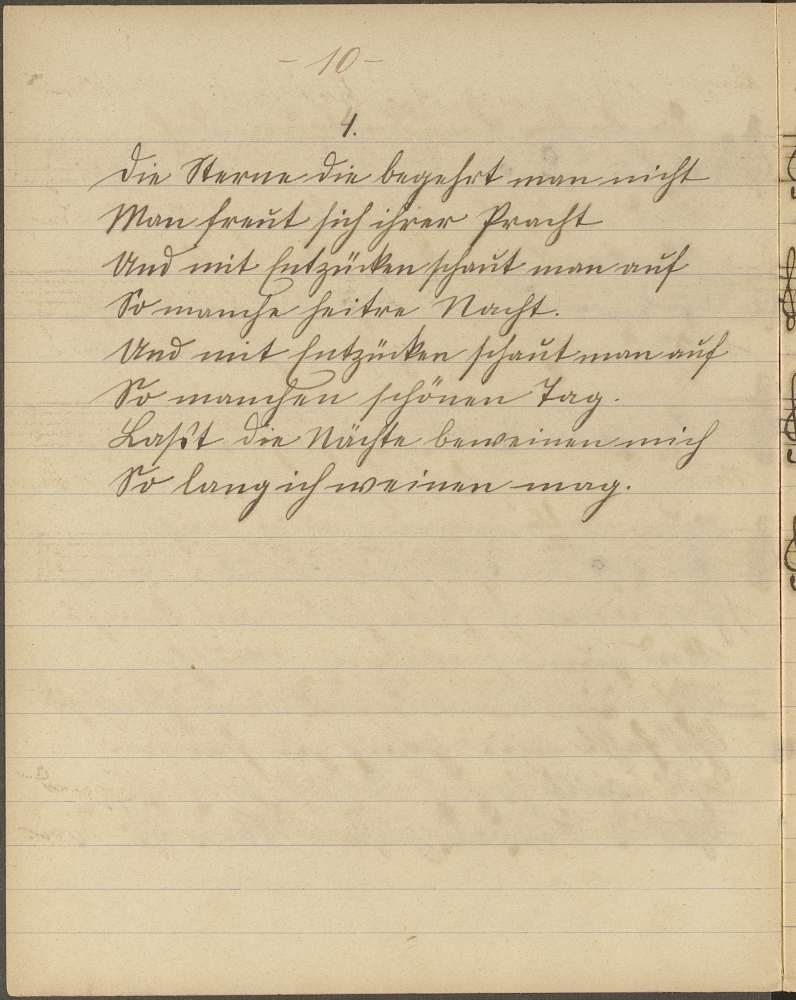 - 10 -
4.
Die Sterne die begehrt man nicht
Man freut sich ihrer Pracht
Und mit Entzücken schaut man auf
So manche heitre Nacht.
Und mit Entzücken schaut man auf
So manchen schönen Tag.
Laßt die Nächte beweinen mich
So lang ich weinen mag.